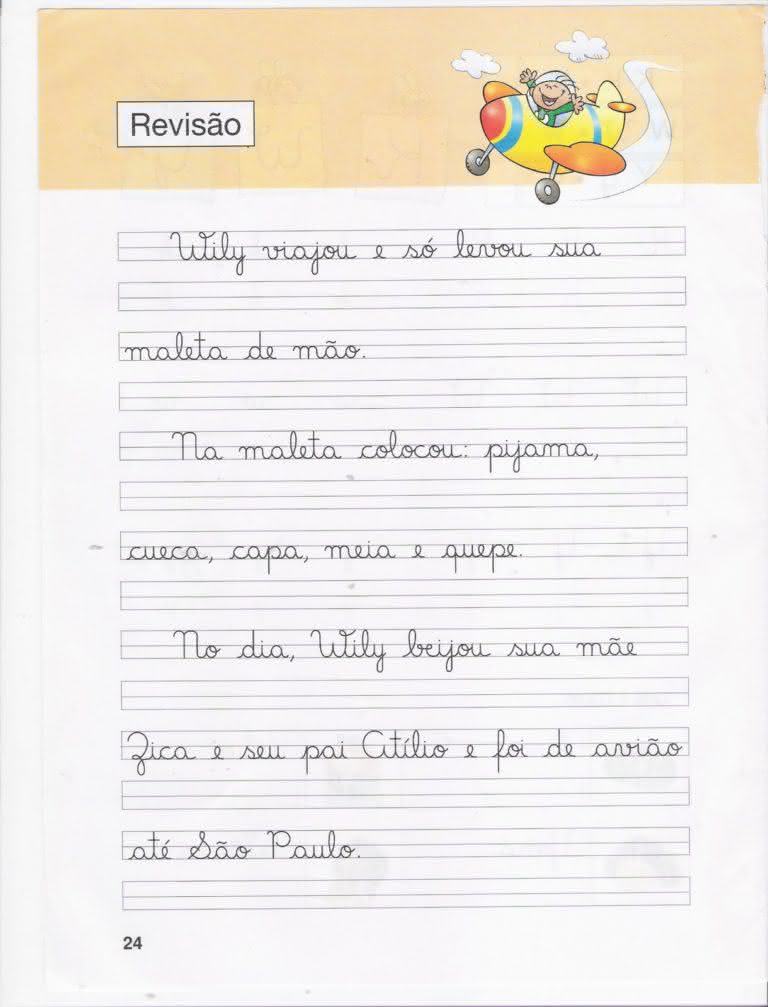 Revisão
Wily viajou e só levou sua
maleta de mão.
Na maleta colocou: pijama,
cueca, capa, meia e quepe.
No dia, Wily beijou sua mãe
Zica e seu pai Atílio e foi de avião
até São Paulo.
24